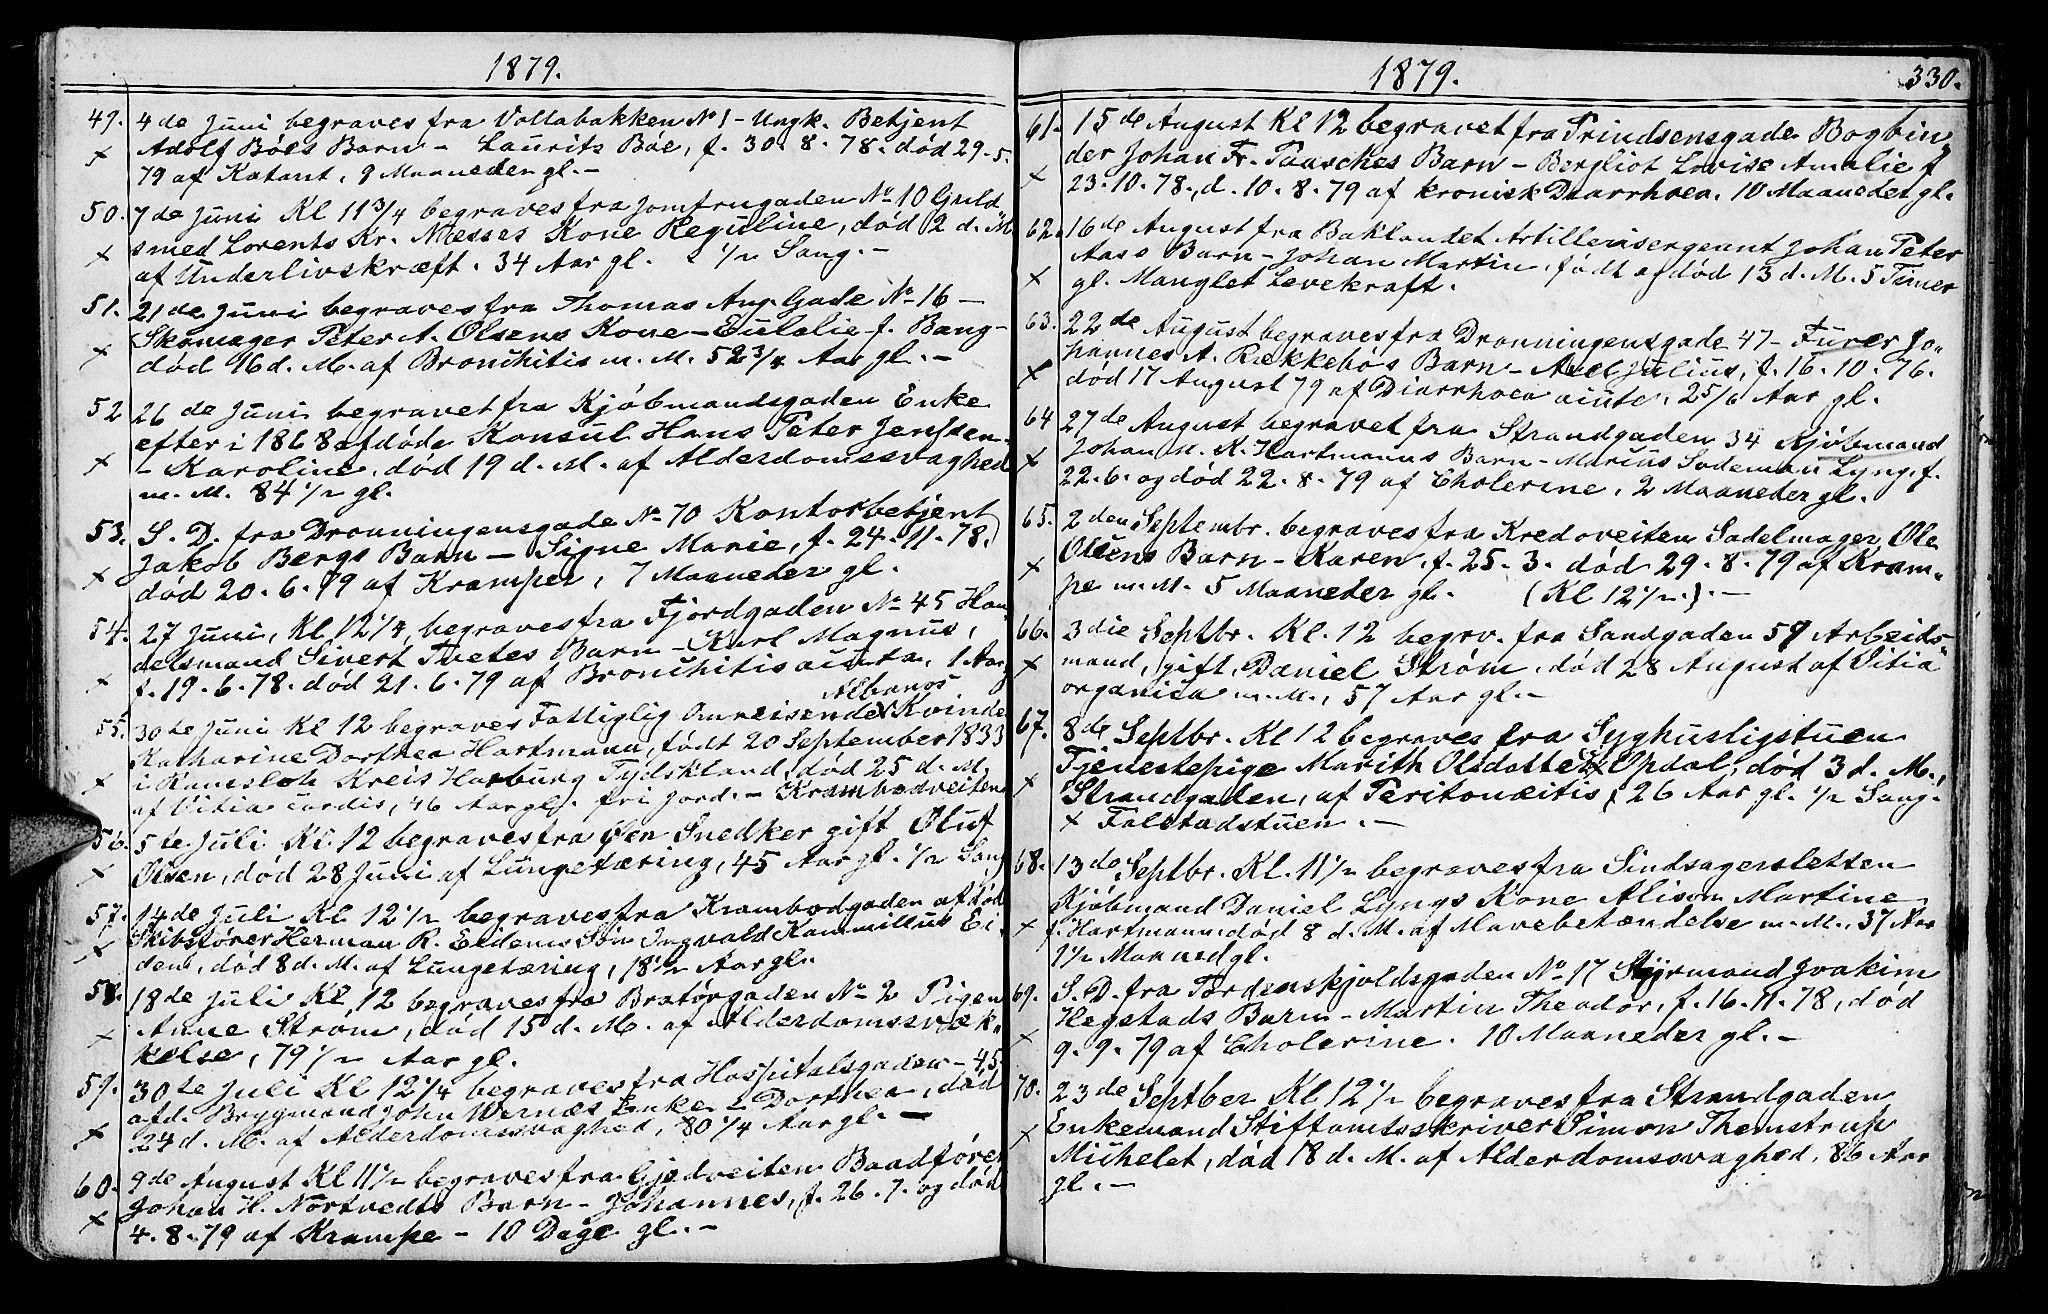 1879.
49. 4de Juni begraves fra Vollabakken No 1 - Ungk. Betjent
× Adolf Bóes Barn - Laurits Bóe, f. 30.8.78. død 29.5.
79 af Katarrh, 9 Maaneder gl. -
50. 7de Juni Kl 11 3/4 begraves fra Jomfrugaden No 10 Guld„
× smed Lorents Kr. Næsses Kone Reguline, død 2 d. M
af Underlivskræft. 34 Aar gl. 1/2 Sang. -
51. 21de Juni begraves fra Thomas Ang. Gade No 16 -
× Skomager Peter A. Olsens Kone - Eulalie f. Bang -
død 16 d. M. af Bronchitis m. M. 52 3/4 Aar gl. -
52 26de Juni begravet fra Kjøbmandsgaden Enke
efter i 1868 afdøde Konsul Hans Peter Jenssen -
× - Karoline, død 19 d. M. af Alderdomssvaghed
m. M. 84 1/2 gl.
53. S. D. fra Dronningensgade No 70 Kontorbetjent
× Jakob Bergs Barn - Signe Marie, f. 24.11.78.
død 20.6.79 af Kramper, 7 Maaneder gl.
54. 27 Juni, Kl 12 1/4, begraves fra Fjordgaden No 45 Han„
delsmand Sivert Tvetes Barn - Karl Magnus,
× f. 19.6.78. død 21.6.79 af Bronchitis acuta, 1 Aar
Albanos
55. 30te Juni Kl 12 begraves Fattiglig Omreisende Kvinde
Katharine Dorthea Hartmann, født 20 September 1833
× i Ramsloh Kreis Harburg Tydskland, død 25 d. M.
af Vitia cordis, 46 Aar gl. fri Jord. - Krambodveiten
56. 5te Juli Kl. 12 begraves fra Øen Snedker gift Oluf
× Olsen, død 28 Juni af Lungetæring, 45 Aar gl. 1/2 Sang
57. 14de Juli Kl 12 1/2 begraves fra Krambodgaden afdød
× Skibsfører Herman R. Eidems Søn Ingvald Kammillus Ei„
dem, død 8 d. M. af Lungetæring, 18 1/2 Aar gl.
58. 18de Juli Kl 12 begraves fra Bratørgaden No 2 Pigen
× Anne Strøm, død 15 d. M. af Alderdomssvæk„
kelse, 79 1/2 Aar gl.
59. 30te Juli Kl 12 1/4 begraves fra Hospitalsgaden - 45
afd. Brygmand John Wernæs Enke - Dorthea, død
× 24 d. M. af Alderdomssvaghed, 80 1/4 Aar gl. -
60. 9de August Kl 11 1/2 begraves fra Gjedveiten Baadfører
× Johan H. Nortvedts Barn - Johannes, f. 26.7. og død
4.8.79 af Krampe - 10 Dage gl. -
1879.
330.
61. 15de August Kl 12 begravet fra Prindsensgade Bogbin„
der Johan Fr. Paasches Barn - Bergliot Lovise Amalie f
× 23.10.78, d. 10.8.79 af kronisk Diarrhoea. 10 Maaneder gl.
62. 16de August fra Baklandet Artillerisergeant Johan Peter
Aass Barn - Johan Martin, født og død 13 d. M. 5 Timer
× gl. Manglet Levekraft.
63. 22de August begraves fra Dronningensgade 47 - Furer Jo„
hannes A. Rækkebós Barn - Axel Julius, f. 16.10.76.
× død 17 August 79 af Diarrhoea acute, 2 5/6 Aar gl.
64 27de August begravet fra Strandgaden 34 Kjøbmand
× Johan M. K. Hartmanns Barn - Marius Sodeman Lyng, f.
22.6. og død 22.8.79 af Cholerine, 2 Maaneder gl.
65. 2den Septembr. begraves fra Kredoveiten Sadelmager Ole
× Olsens Barn - Karen, f. 25.3. død 29.8.79 af Kram„
pe m. M. 5 Maaneder gl. (Kl 12 1/2.). -
66. 3die Septbr. Kl. 12 begrv. fra Sandgaden 57 Arbeids„
× mand, gift, Daniel Strøm, død 28 August af Vitia
organica m. M., 57 Aar gl. -
67. 8de Septbr. Kl 12 begraves fra Syghusligstuen
Tjenestepige Marith Olsdatter × Opdal, død 3 d. M.,
× Strandgaden, af Peritonæitis, 26 Aar gl. 1/2 Sang.
× Falstadstuen. -
68. 13de Septbr. Kl. 11 1/2 begraves fra Sindsagersletten
Kjøbmand Daniel Lyngs Kone Alison Martine
× f. Hartmann død 8 d. M. af Mavebetændelse m. M., 37 Aar
1 1/2 Maaned gl.
69. S. D. fra Tordenskjoldsgaden No 17 Styrmand Joakim
Hegstads Barn - Martin Theodor, f. 16.11.78, død
× 9.9.79 af Cholerine. 10 Maaneder gl. -
70. 23de Septber Kl 12 1/2 begraves fra Strandgaden
× Enkemand Stiftamtsskriver Simon Themstrup
Michelet, død 18 d. M. af Alderdomssvaghed, 86 Aar
gl. -